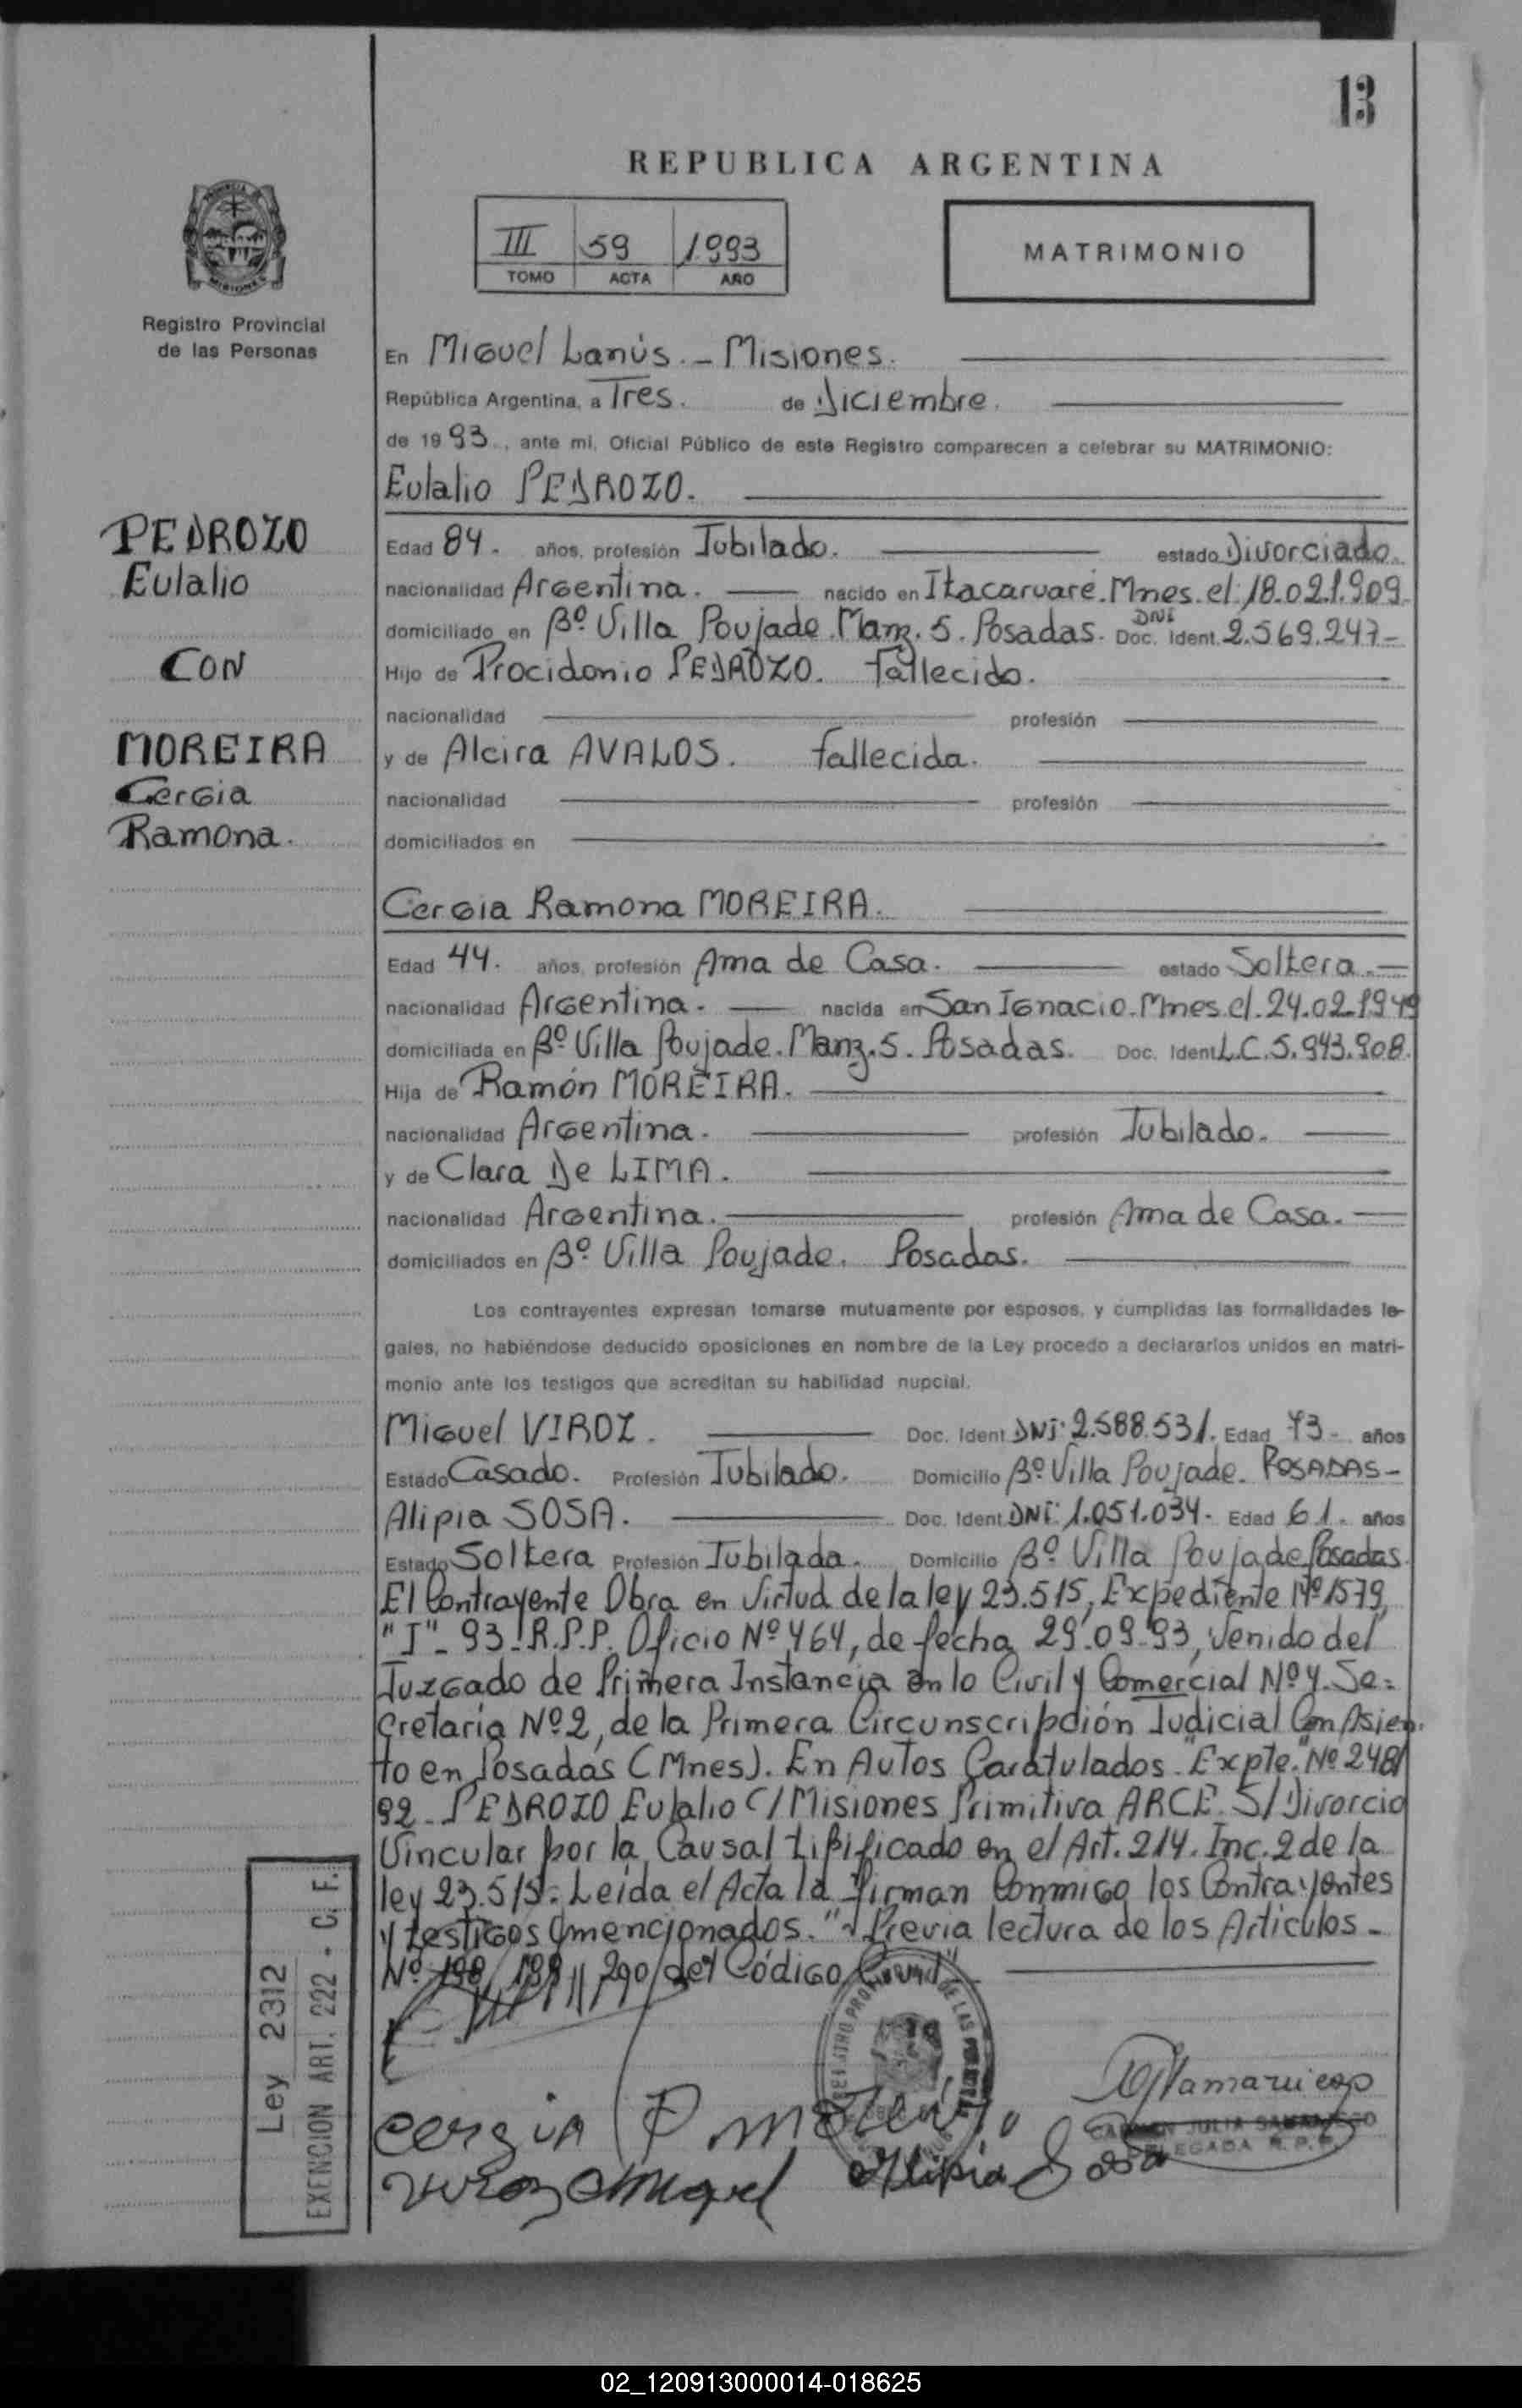 13
REPUBLICA ARGENTINA
III 59 1.993
TOMO ACTA AÑO
MATRIMONIO
Registro Provincial
de las Personas
En Miguel Lanús. - Misiones.
República Argentina, a Tres. de Diciembre.
de 1993., ante mi, Oficial Público de este Registro comparecen a celebrar su MATRIMONIO:
Eulalio PEDROZO.
PEDROZO
Eulalio
CON
MOREIRA
Cergia
Ramona.
Edad 84. años, profesión Jubilado. estado Divorciado.
nacionalidad Argentina. nacido en Itacaruaré. Mnes. el: 18.02.1.909.
domiciliado en Bº Villa Poujade. Manz. 5. Posadas. DNI Doc. Ident. 2.569.247-
Hijo de Procidonio PEDROZO. Fallecido.
nacionalidad profesión
y de Alcira AVALOS. fallecida.
nacionalidad profesión
domiciliados en
Cergia Ramona MOREIRA.
Edad 44. años, profesión Ama de Casa. estado Soltera.-
nacionalidad Argentina. nacida en San Ignacio. Mnes. el. 24.02.1949
domiciliada en Bº Villa Poujade. Manz. 5. Posadas. Doc. Ident. L.C. 5.943.908.
Hija de Ramón MOREIRA.
nacionalidad Argentina. profesión Jubilado.
y de Clara De LIMA.
nacionalidad Argentina. profesión Ama de Casa.
domiciliados en Bº Villa Poujade. Posadas.
Los contrayentes expresan tomarse mutuamente por esposos, y cumplidas las formalidades le-
gales, no habiéndose deducido oposiciones en nombre de la Ley procedo a declararlos unidos en matri-
monio ante los testigos que acreditan su habilidad nupcial.
Miguel VIROZ. Doc. Ident. DNI: 2.588.531. Edad 73- años
Estado Casado. Profesión Jubilado. Domicilio Bº Villa Poujade. POSADAS-
Alipia SOSA. Doc. Ident. DNI: 1.051.034. Edad 61. años
Estado Soltera Profesión Jubilada. Domicilio Bº Villa Poujade Posadas.
El Contrayente Obra en Virtud de la ley 23.515, Expediente Nº 1579,
"J"- 93- R.P.P. Oficio Nº 464, de fecha 29.09.93, Venido del
Juzgado de Primera Instancia en lo Civil y Comercial Nº 4. Se=
cretaría Nº 2, de la Primera Circunscripción Judicial Con Asien-
to en Posadas (Mnes). En Autos Caratulados "Expte." Nº 248/
92- PEDROZO Eulalio C/ Misiones Primitiva ARCE. S/ Divorcio
Vincular por la Causal tipificado en el Art. 214. Inc. 2 de la
ley 23.515. Leída el Acta la firman Conmigo los Contrayentes
y testigos mencionados." Previa lectura de los Artículos -
Nº 198, 199 y 200 del Código Civil"
Ley 2312
EXENCION ART. 222 - C. F.:
cergia R moreira
viroz Miguel Alipia Sosa
CARMEN JULIA SAMANIEGO
DELEGADA R. P. P.
02_120913000014-018625